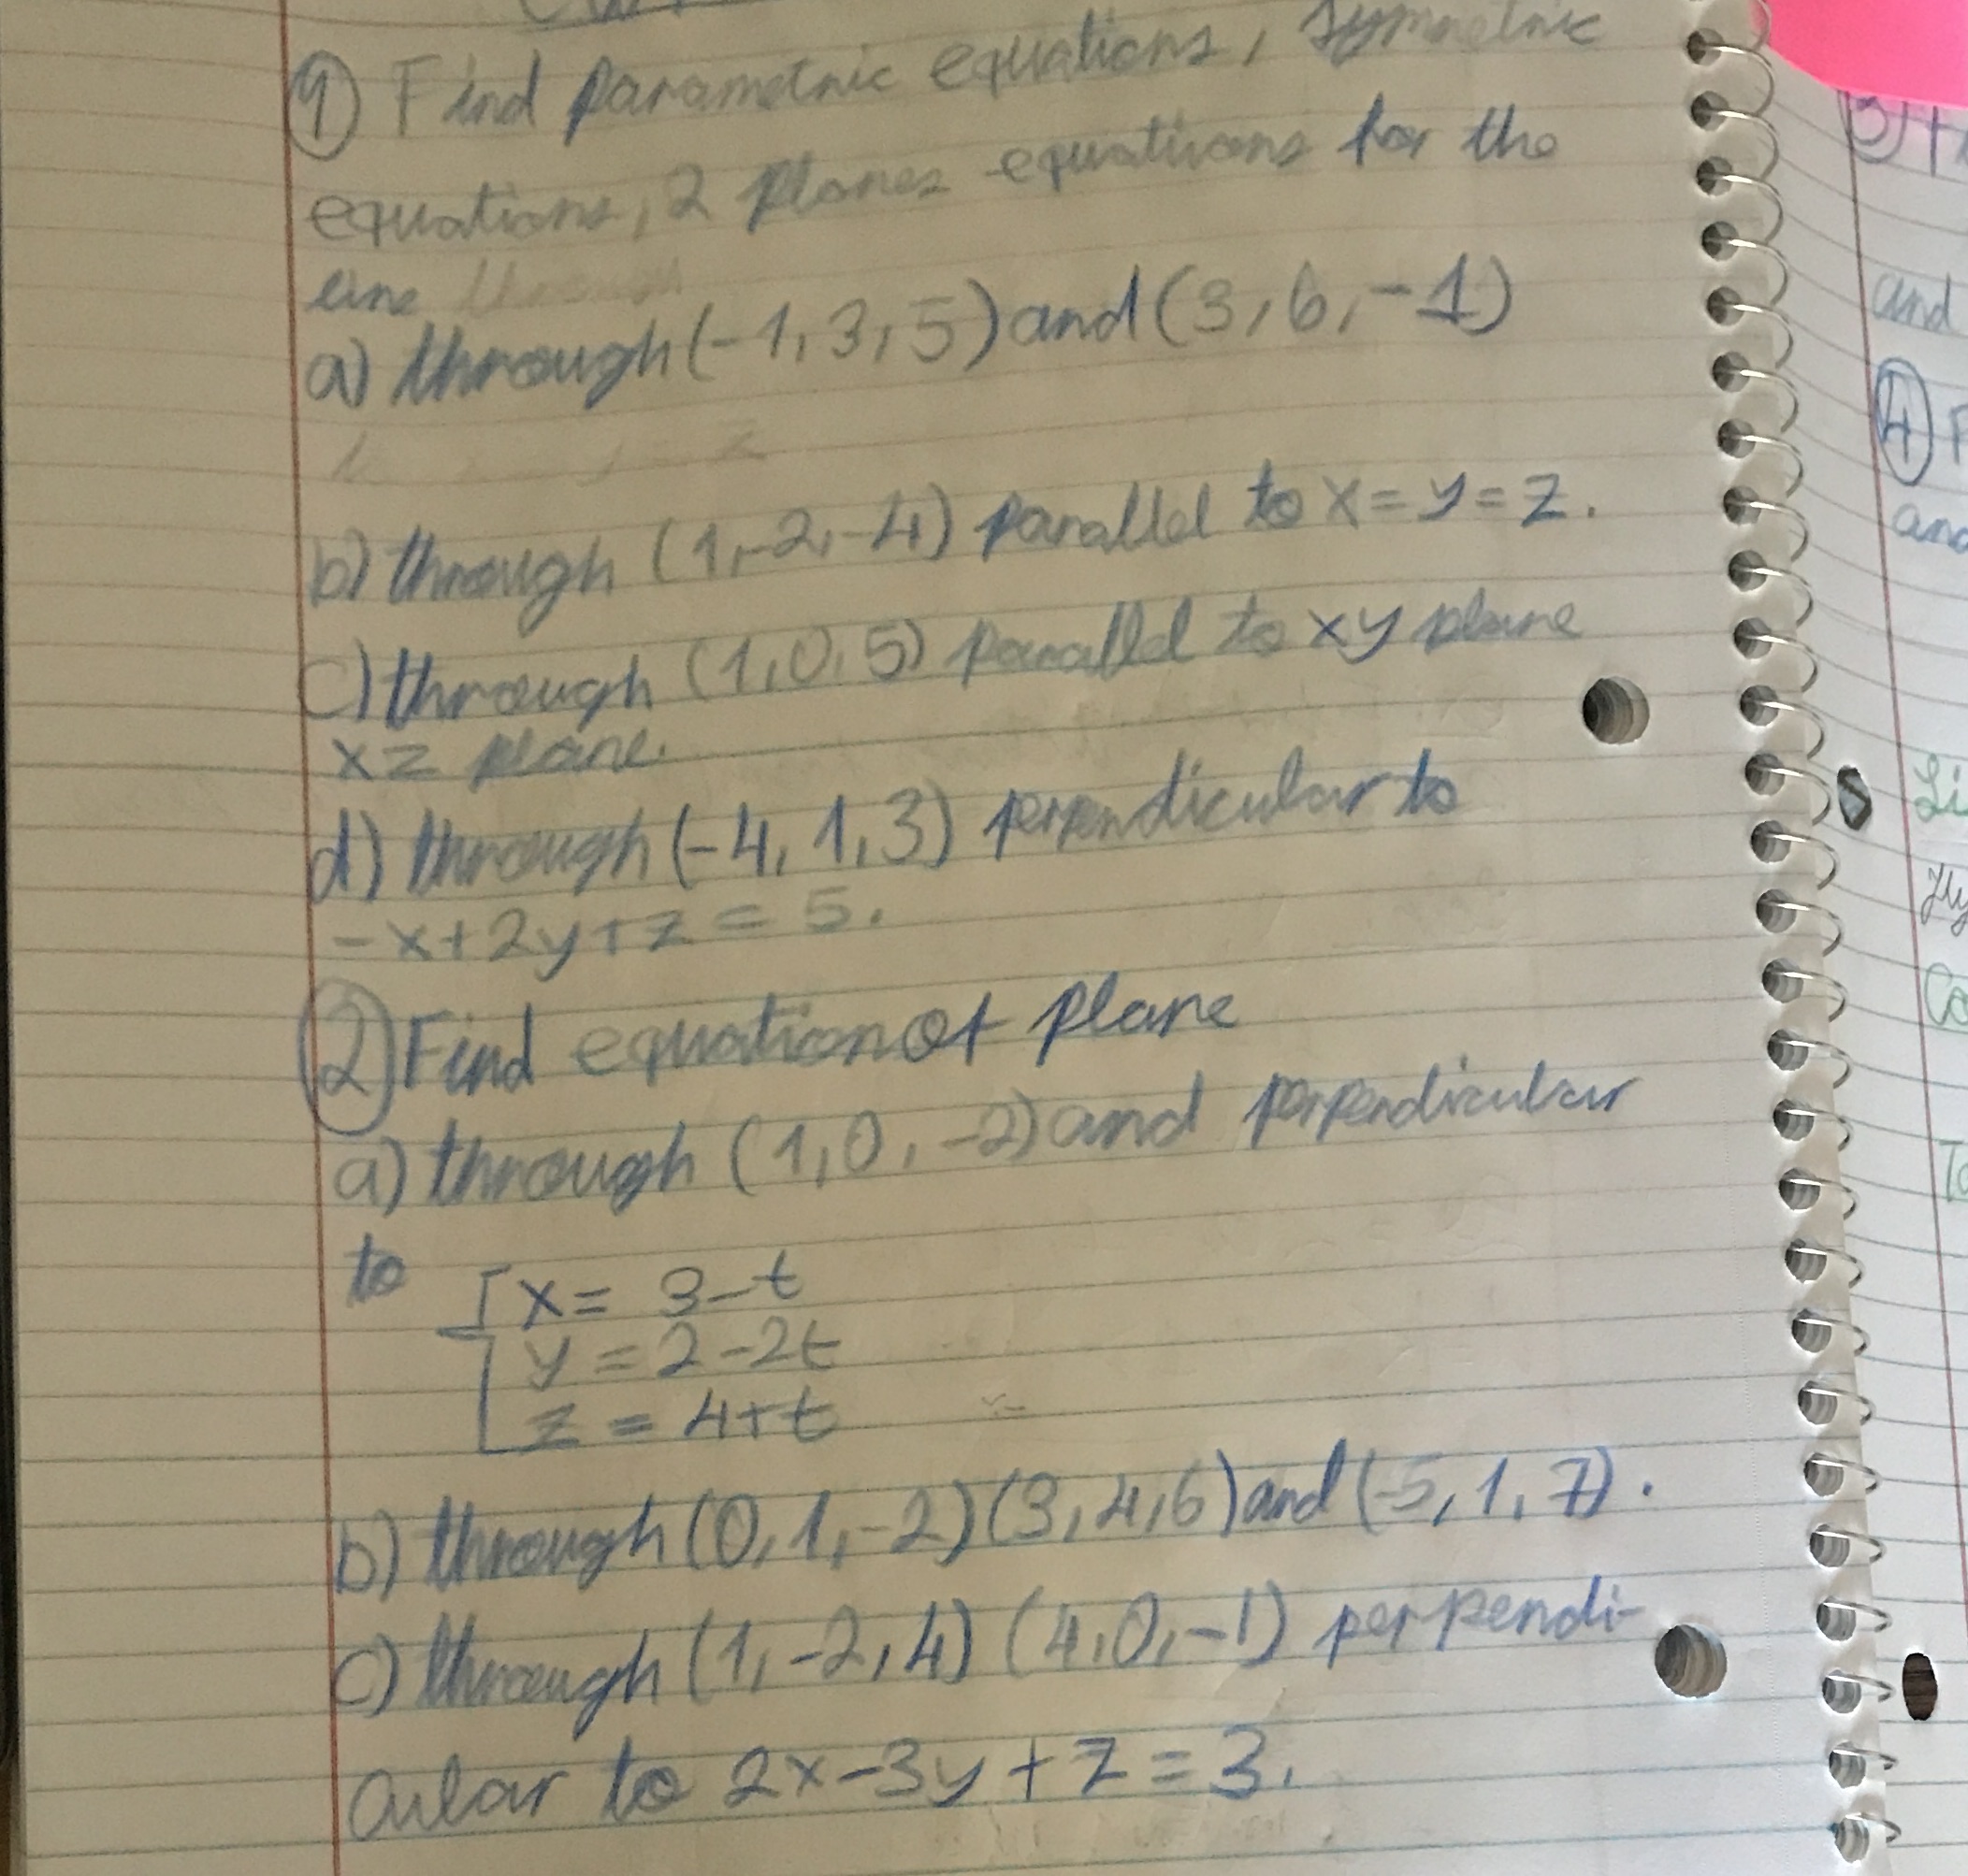 ① Find parametric equations, symmetric
equations, 2 planes equations for the
line through
a) through (-1, 3, 5) and (3, 6, -1)
b) through (1, -2, -4) parallel to x = y = z.
c) through (1, 0, 5) parallel to xy plane
xz plane.
d) through (-4, 1, 3) perpendicular to
-x + 2y + z = 5.
② Find equation of plane
a) through (1, 0, -2) and perpendicular
to
x = 3 - t
y = 2 - 2t
z = 4 + t
b) through (0, 1, -2) (3, 4, 6) and (-5, 1, 7).
c) through (1, -2, 4) (4, 0, -1) perpendi-
cular to 2x - 3y + z = 3.
and
④ F
and